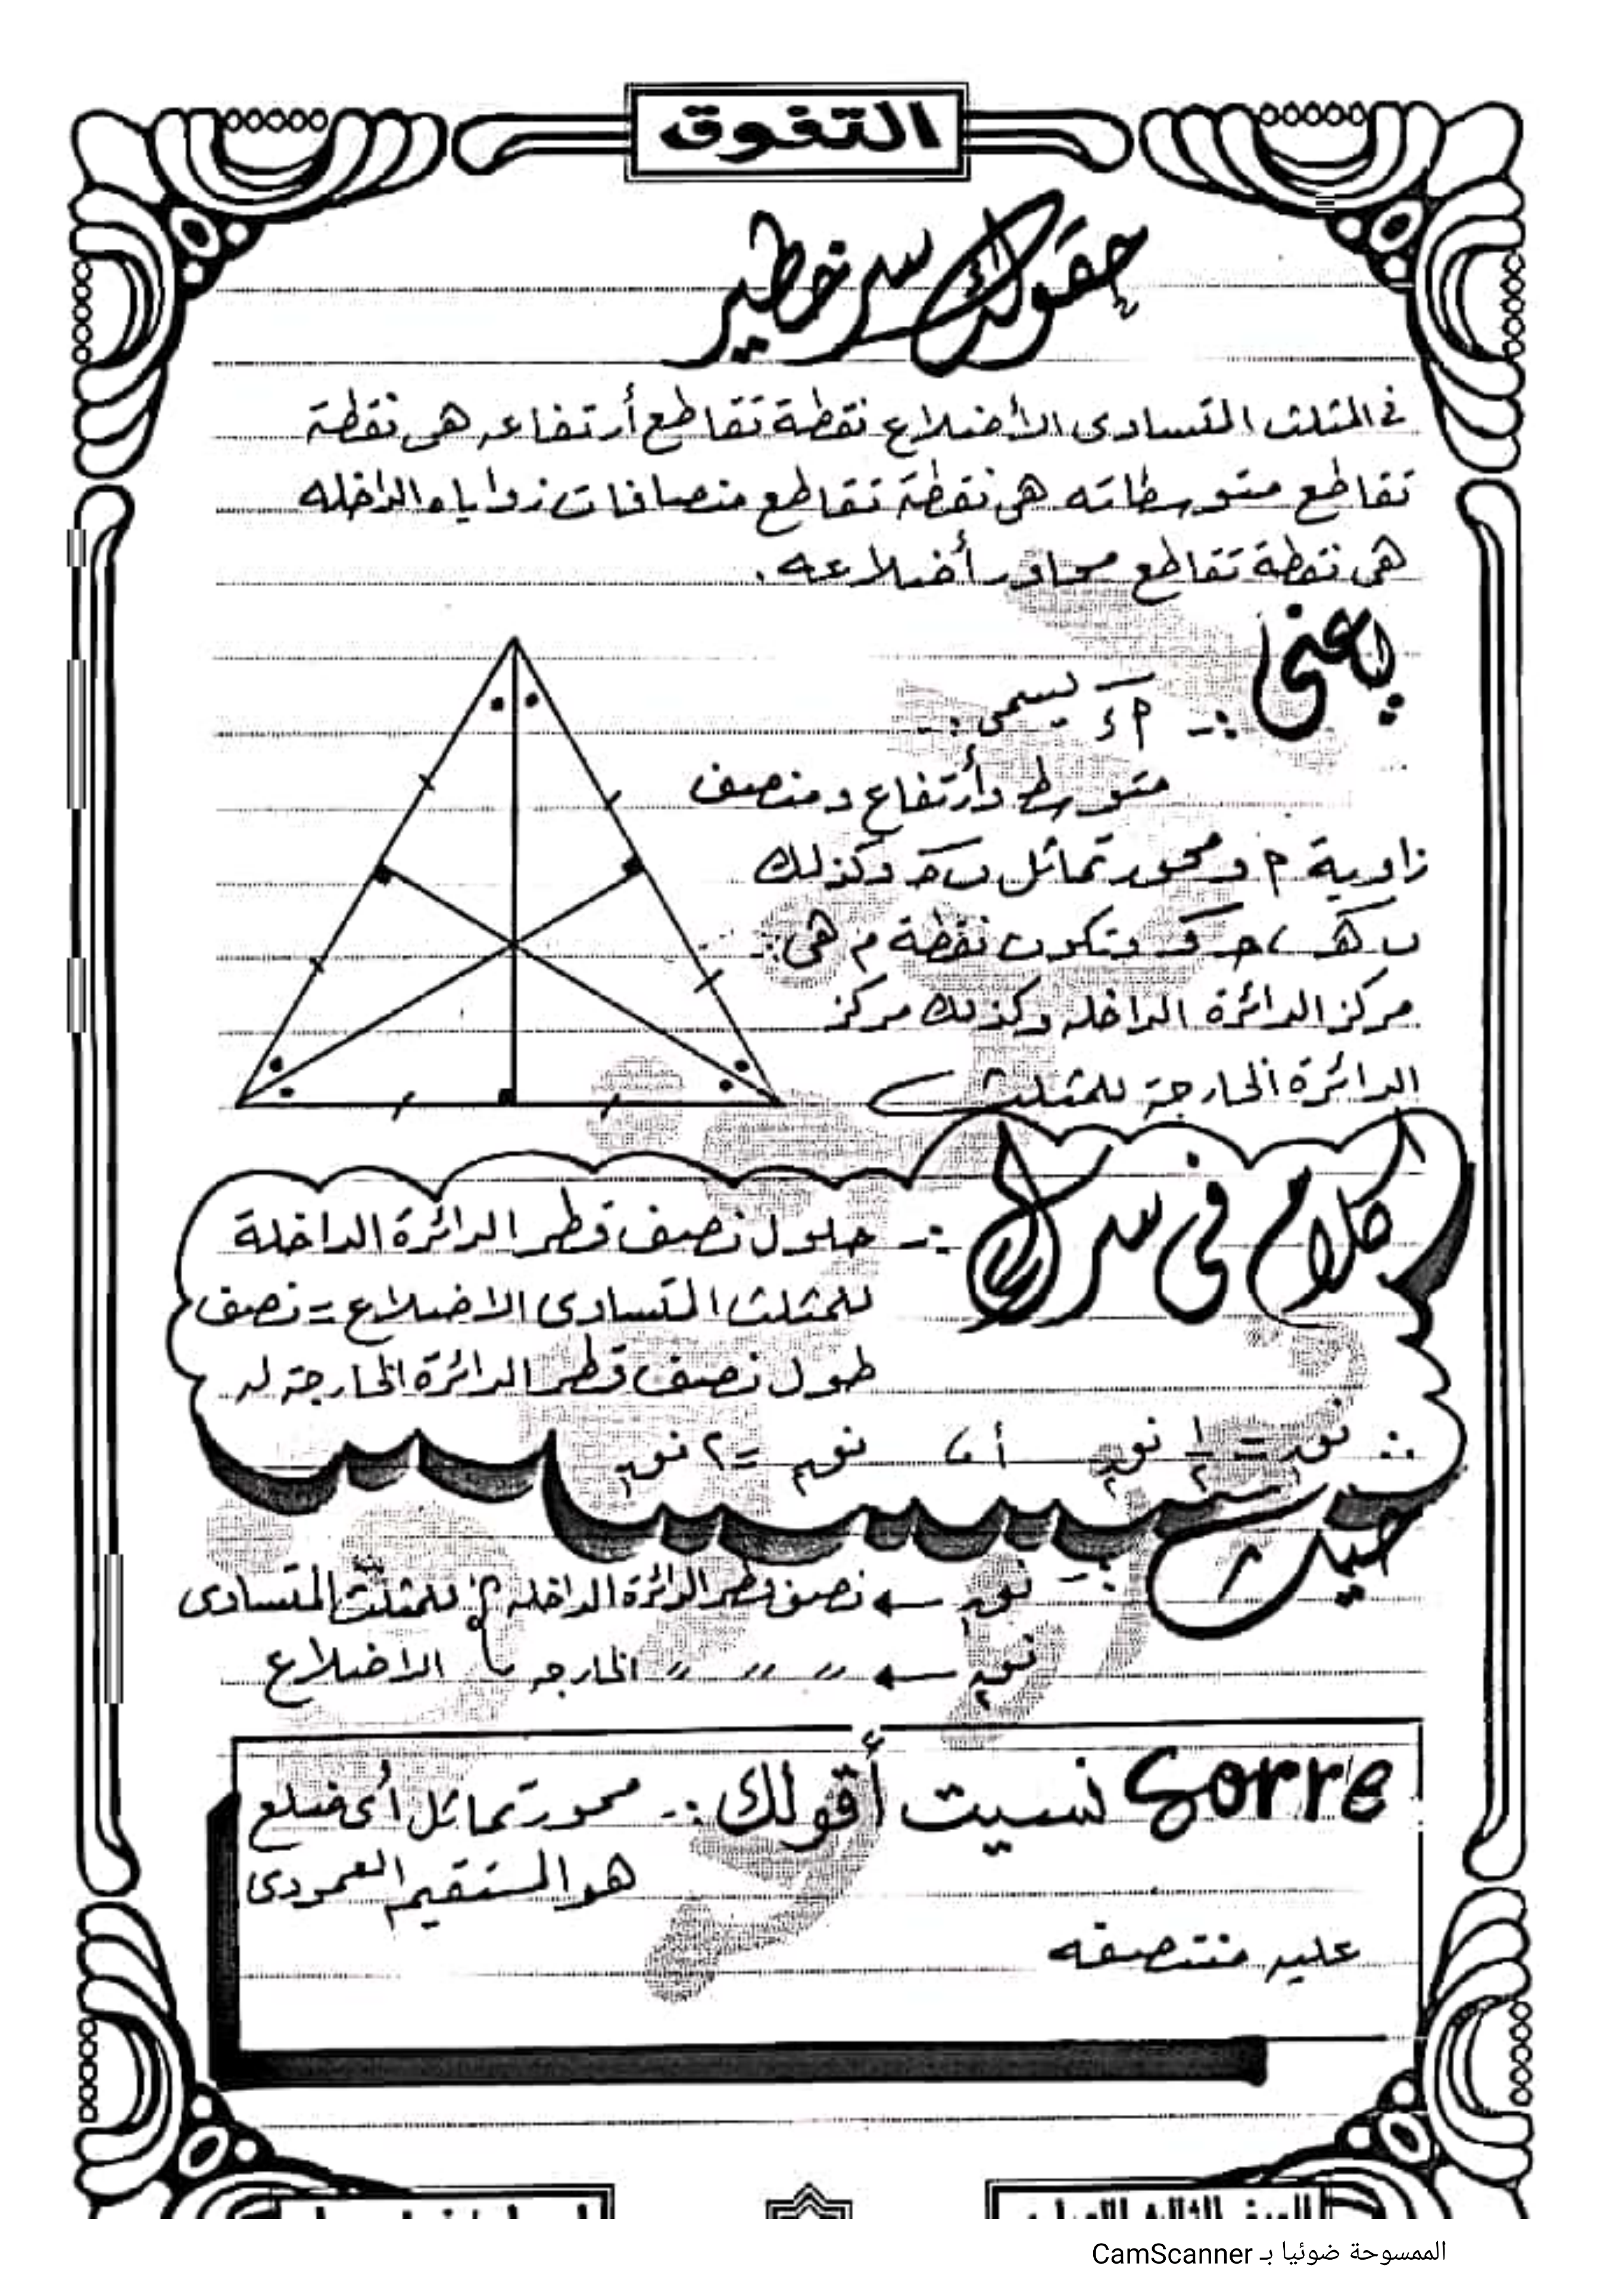 التفوق
حقولك سر خطير
فى المثلث المتساوى الأضلاع نقطة تقاطع أرتفاعه هى نقطة
تقاطع متوسطاته هى نقطة تقاطع منصافات زواياه الداخله
هى نقطة تقاطع محاور أضلاعه.
يعنى :- م5 يسمى :-
متوسط وأرتفاع ومنصف
زاوية م ومحور تماثل ب حـ وكذلك
ب هـ ، حـ و وتكون نقطة م هى :-
مركز الدائرة الداخله وكذلك مركز
الدائرة الخارجة للمثلث
كلام فى سرك :- طول نصف قطر الدائرة الداخلة
للمثلث المتساوى الاضلاع = نصف
طول نصف قطر الدائرة الخارجة له
∴ نق١ = ١/٢ نق٢ أ، نق٢ = ٢ نق١
حيث :- نق١ ← نصف قطر الدائرة الداخله للمثلث المتساوى
نق٢ ← 〃 〃 〃 الخارجه الاضلاع
Sorre نسيت أقولك :- محور تماثل أى ضلع
هو المستقيم العمودى
عليه منتصفه
الممسوحة ضوئيا بـ CamScanner